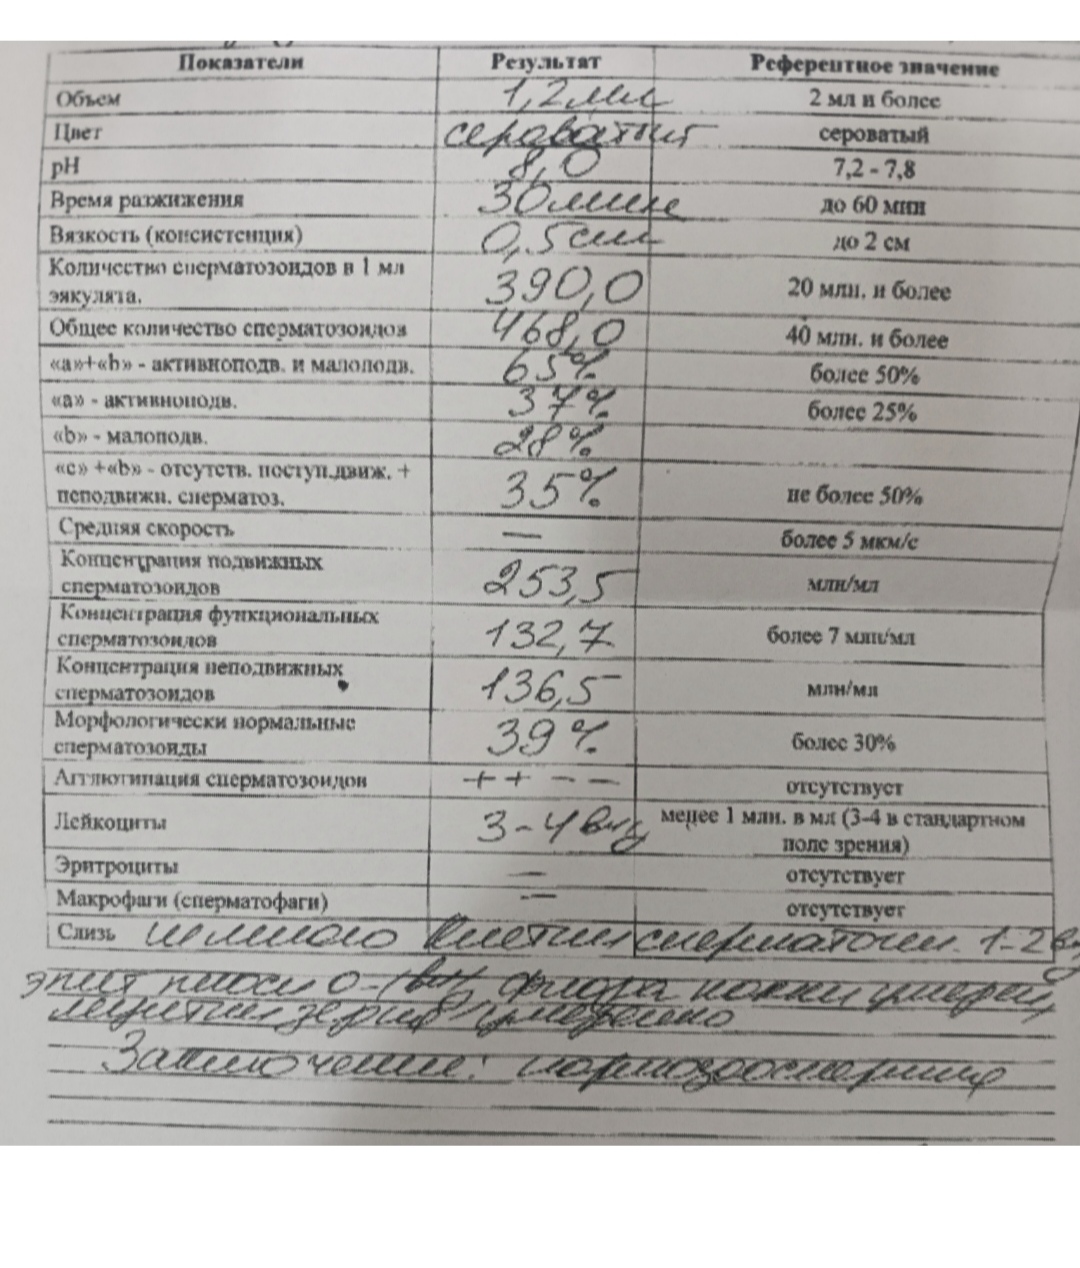 Показатели Результат Референтное значение
Объем 1,2 мл 2 мл и более
Цвет сероватый сероватый
pH 8,0 7,2 - 7,8
Время разжижения 30 мин до 60 мин
Вязкость (консистенция) 0,5 см до 2 см
Количество сперматозоидов в 1 мл
эякулята. 390,0 20 млн. и более
Общее количество сперматозоидов 468,0 40 млн. и более
«a»+«b» - активноподв. и малоподв. 65% более 50%
«a» - активноподв. 37% более 25%
«b» - малоподв. 28%
«c» +«b» - отсутств. поступ.движ. +
неподвижн. сперматоз. 35% не более 50%
Средняя скорость — более 5 мкм/с
Концентрация подвижных
сперматозоидов 253,5 млн/мл
Концентрация функциональных
сперматозоидов 132,7 более 7 млн/мл
Концентрация неподвижных
сперматозоидов 136,5 млн/мл
Морфологически нормальные
сперматозоиды 39% более 30%
Агглютинация сперматозоидов ++ -- отсутствует
Лейкоциты 3-4 в п/з менее 1 млн. в мл (3-4 в стандартном
поле зрения)
Эритроциты — отсутствует
Макрофаги (сперматофаги) — отсутствует
Слизь немного Клетки сперматоген. 1-2 в
эпит плоск 0-1 флора кокки умерен
лецитин зерна умеренно
Заключение: нормозооспермия